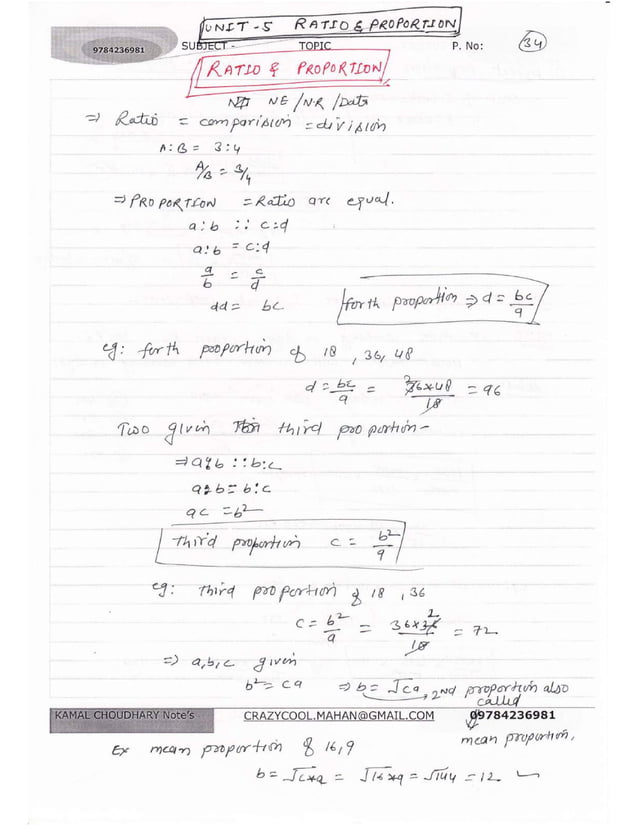 UNIT-5 RATIO & PROPORTION
9784236981 SUBJECT - TOPIC P. No: 34
RATIO & PROPORTION
NE/NR/Data
⇒ Ratio = comparision = division
A:B = 3:4
A/B = 3/4
⇒ PROPORTION = Ratio are equal.
a:b :: c:d
a:b = c:d
a/b = c/d
dd = bc
forth proportion ⇒ d = bc/a
eg: forth proportion of 18, 36, 48
d = bc/a = 36×48/18 = 96
Two given third proportion-
⇒ a:b :: b:c
a:b = b:c
ac = b²
third proportion c = b²/a
eg: third proportion of 18, 36
c = b²/a = 36×36/18 = 72
⇒ a,b,c given
b² = ca ⇒ b = √ca, 2nd proportion also
called
mean proportion.
KAMAL CHOUDHARY Note's CRAZYCOOL.MAHAN@GMAIL.COM 09784236981
Ex mean proportion of 16,9
b = √c*a = √16*9 = √144 = 12